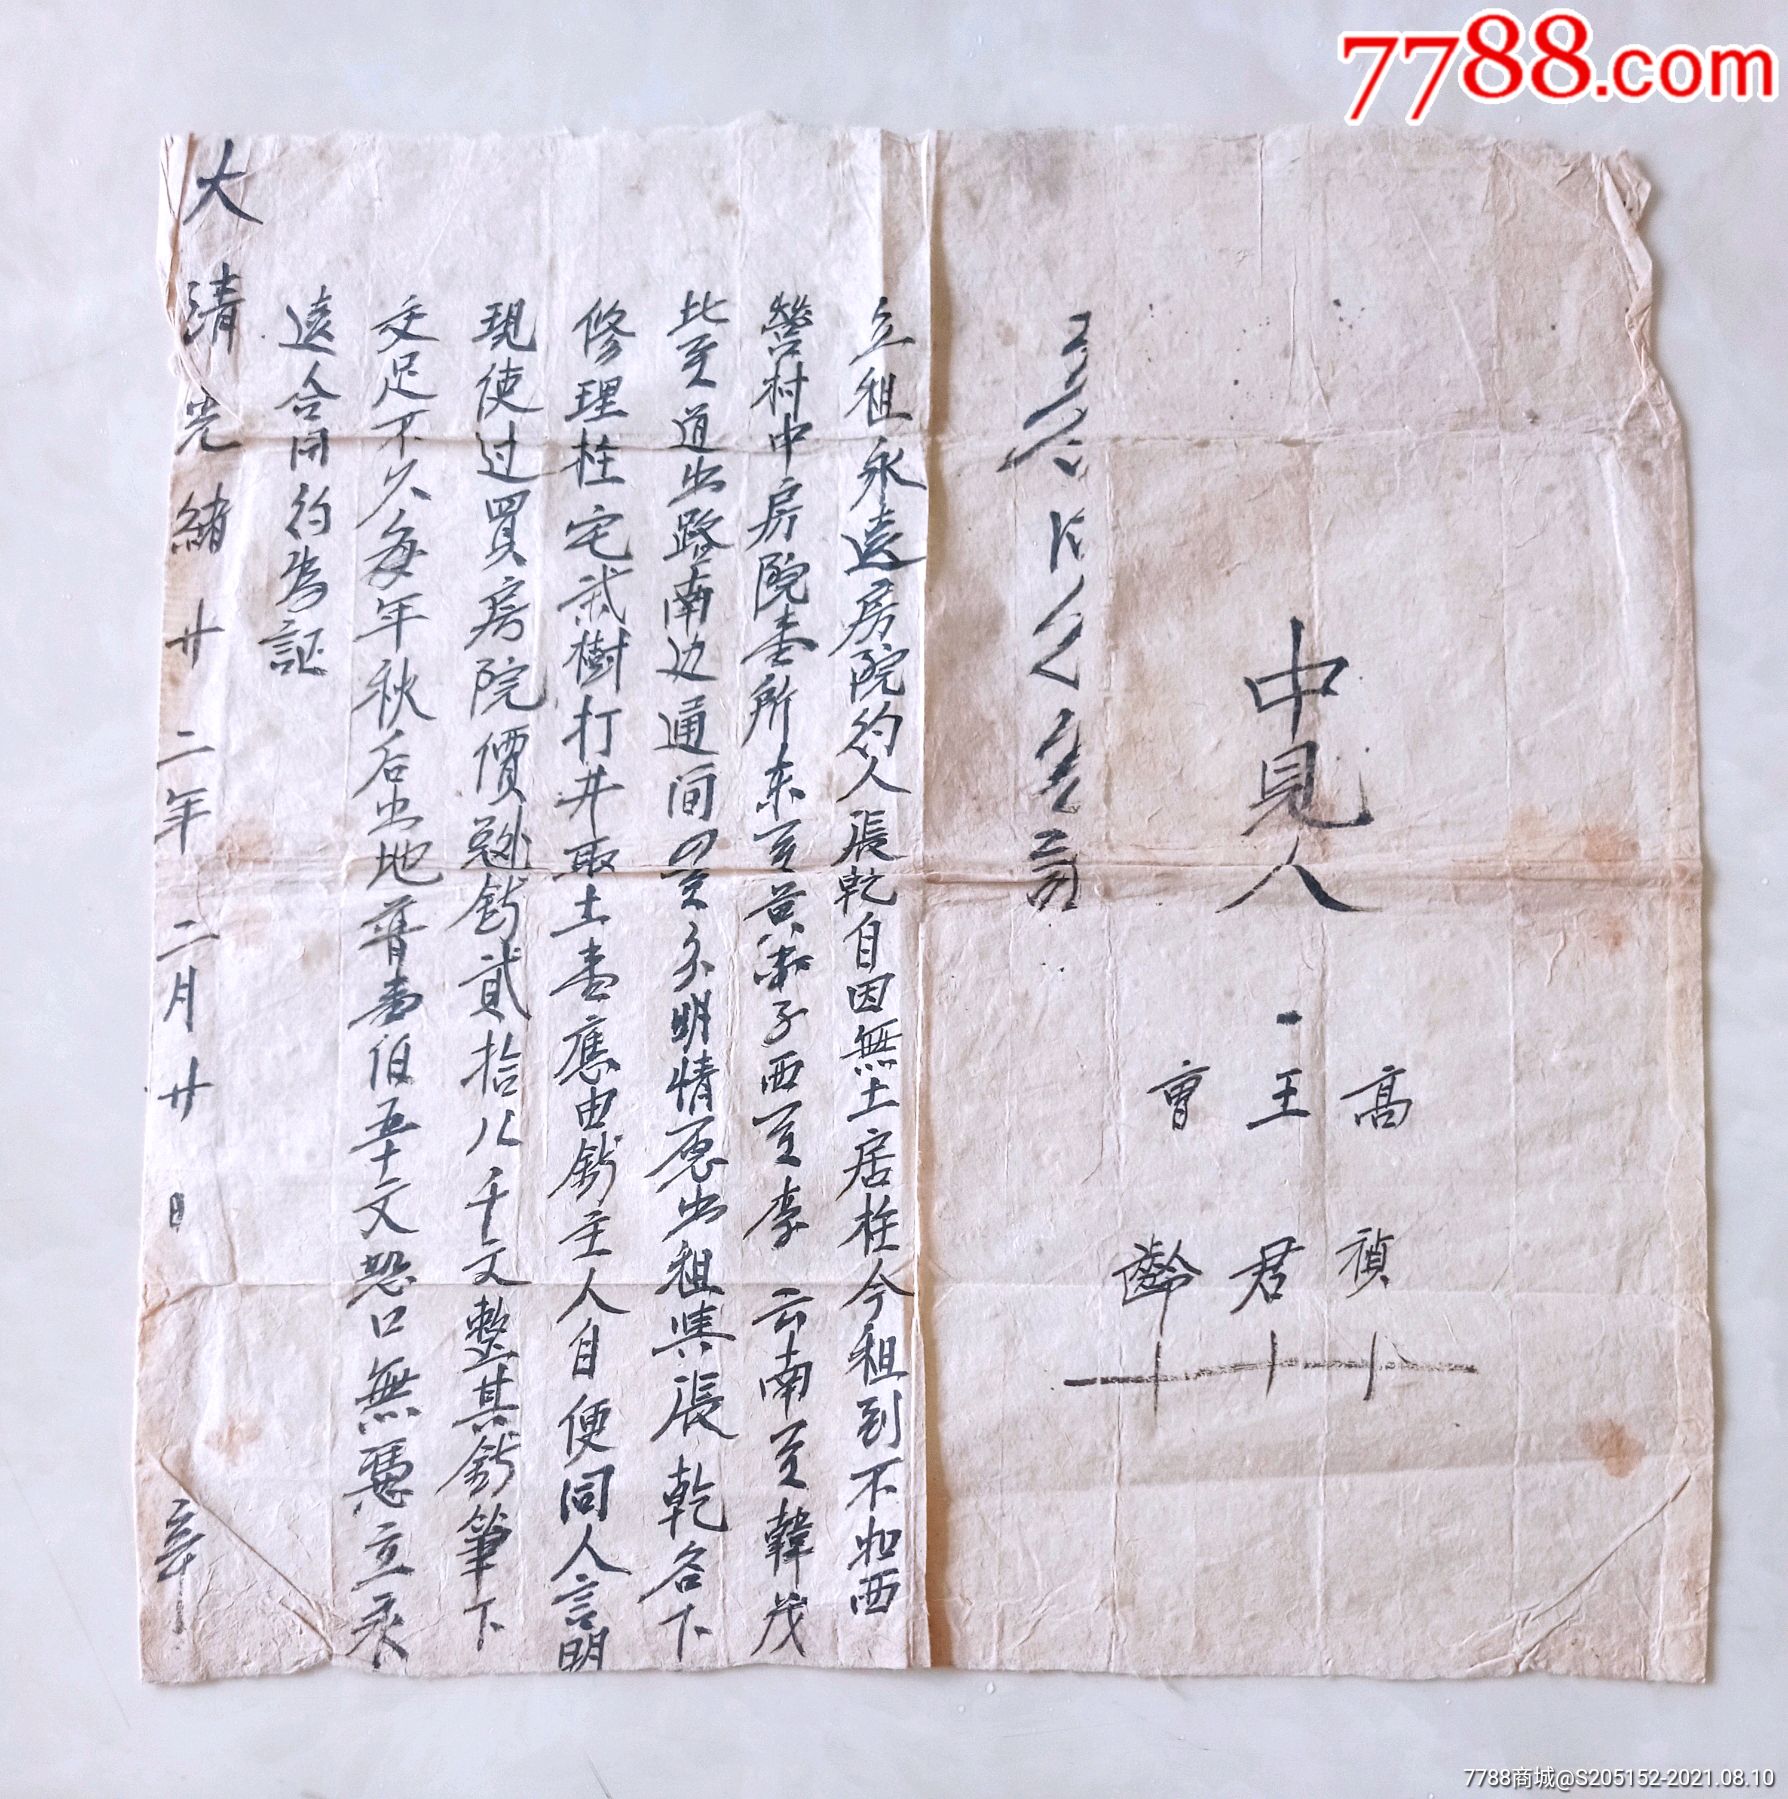 7788.com
立租永遠房院約人張乾自因無土居柱今租到不如西
營村中房院壹所東至黄 子西至李 云南至韓茂
北至道出路南边通间四至分明情愿出租與張乾名下
修理柱宅 樹打井取土壹應由錢主人自便同人言明
現使过買房院價 錢貳拾八千文整其錢筆下
交足不欠每年秋后出地普壹佰五十文恐口無憑立永
遠合同約為証
大清光緒廿二年二月廿日 立
中見人
高 禎
王 君
曹 齡
十
7788商城@S205152-2021.08.10